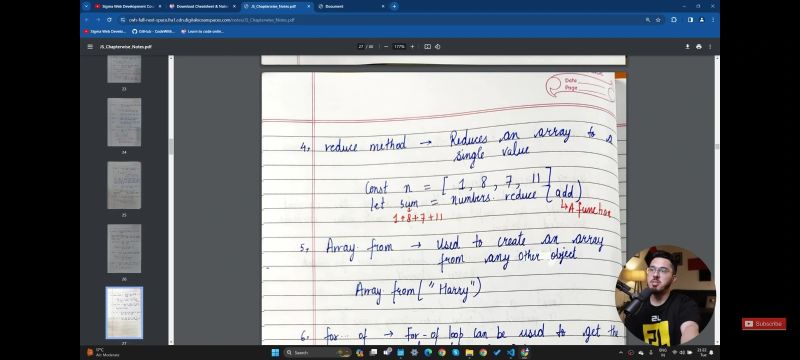 Sigma Web Development Co
Download Cheatsheet & Note
JS_Chapterwise_Notes.pdf
Document
cwh-full-next-space.fra1.cdn.digitaloceanspaces.com/notes/JS_Chapterwise_Notes.pdf
Sigma Web Develop...
GitHub - CodeWith...
Learn to code online...
JS_Chapterwise_Notes.pdf
27 /
177%
23
24
25
26
27
Date
Page
4, reduce method → Reduces an array to a
single value
Const n = [ 1, 8, 7, 11 ]
let sum = numbers. reduce (add)
1+8+7+11
↳ A function
5, Array from → Used to create an array
from any other object
Array from ( "Harry" )
6, for... of → For-of loop can be used to get the
Subscribe
Search
ENG
IN